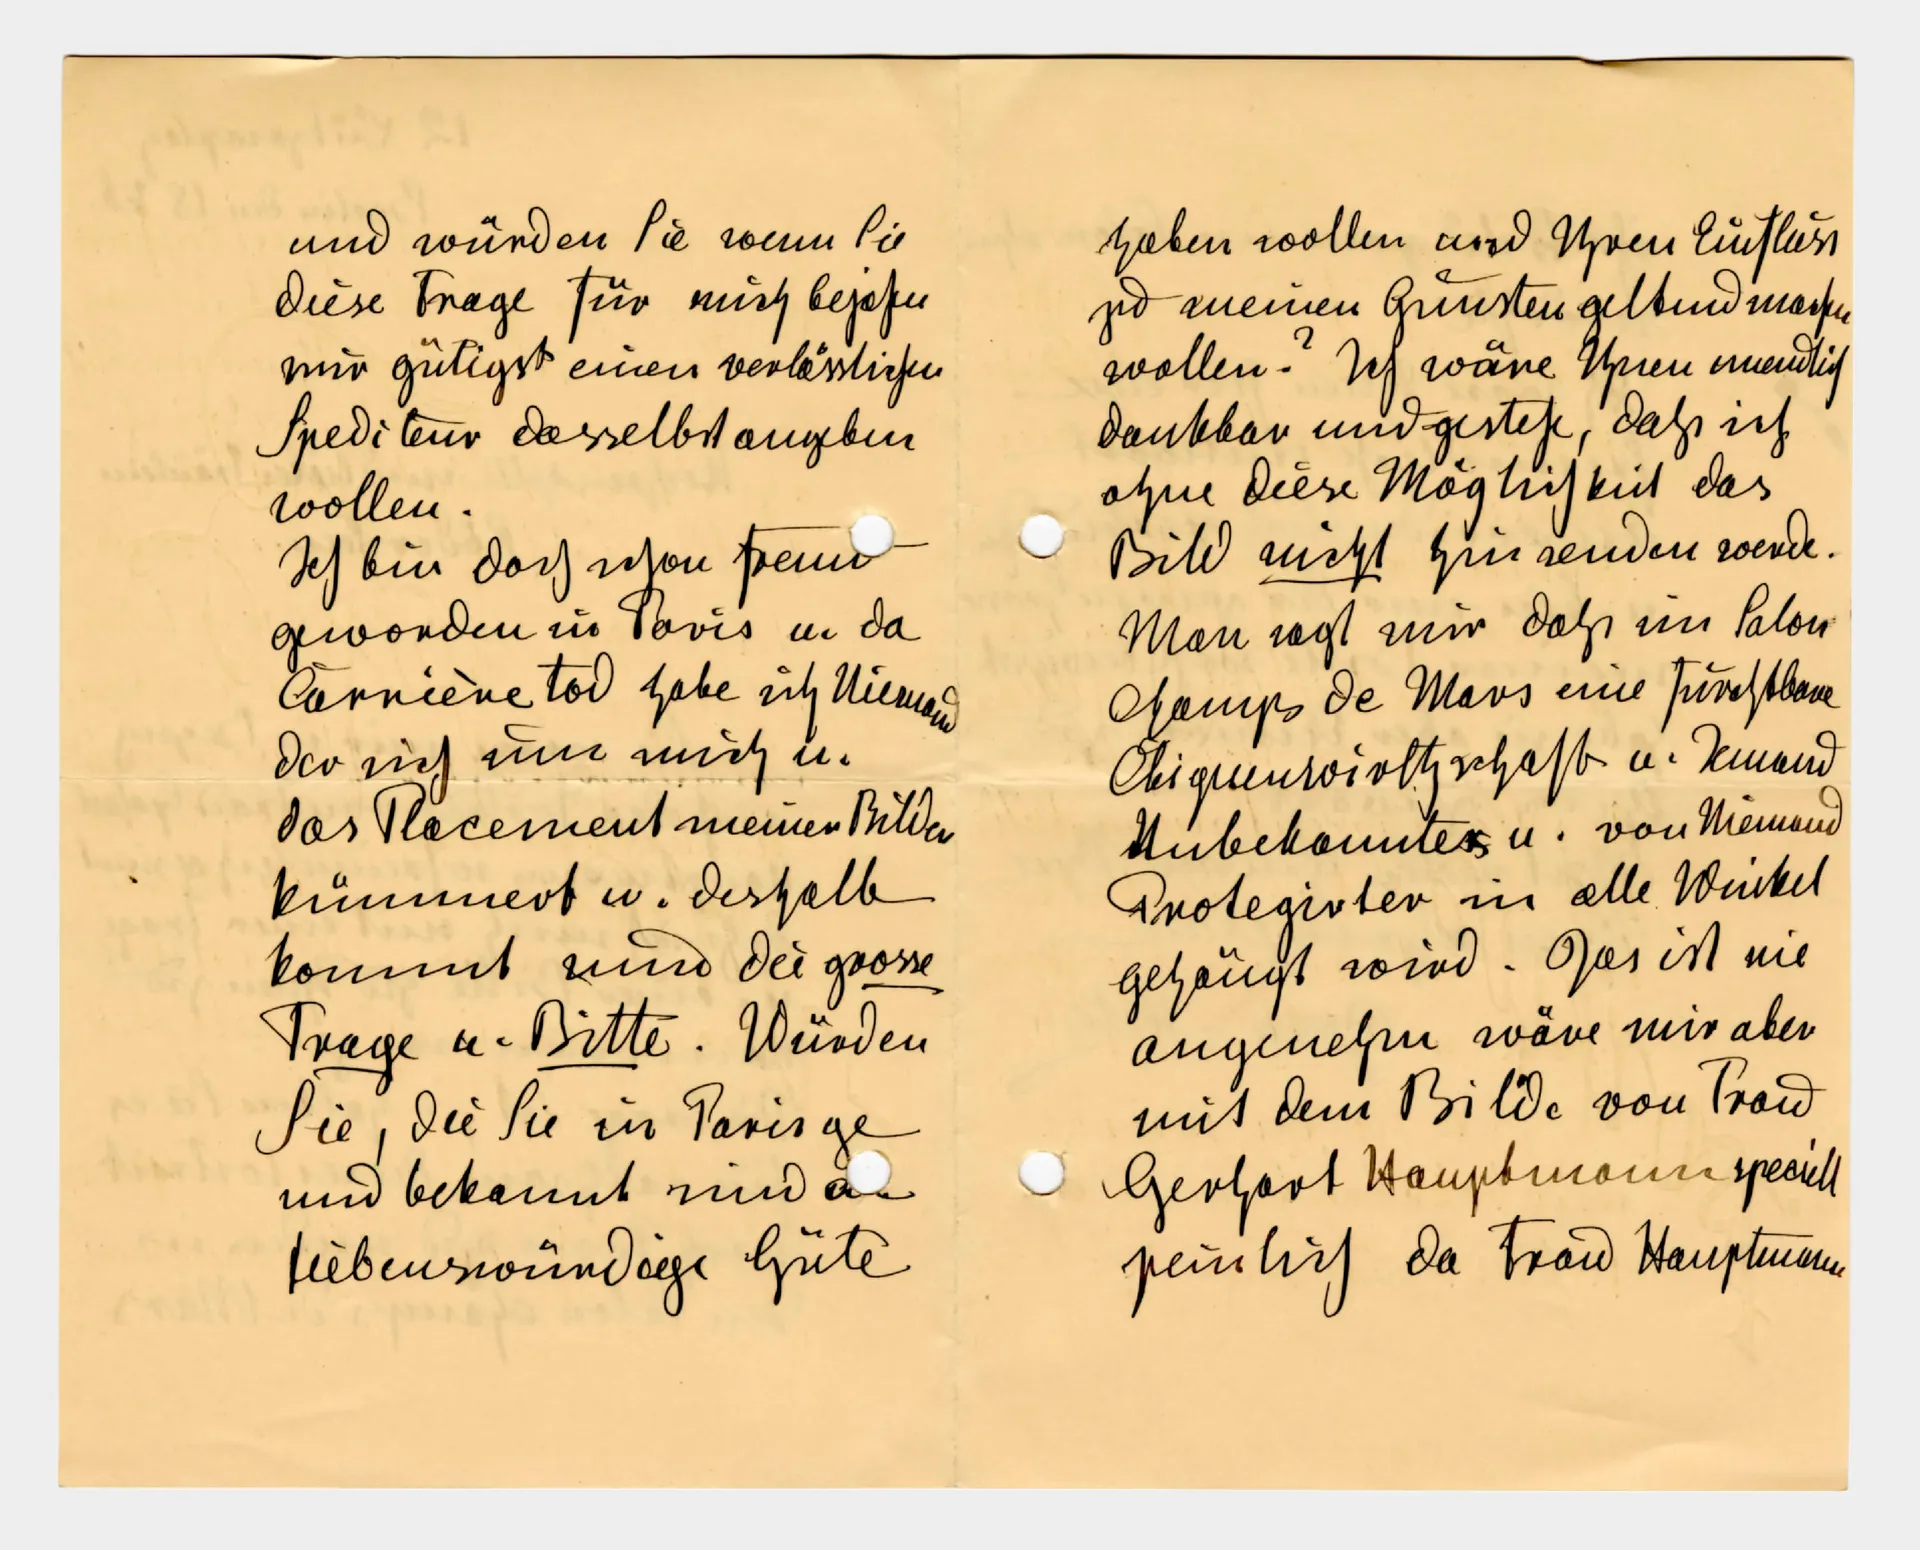 und würden Sie wenn Sie
diese Frage für mich bejahen
mir gütigst einen verlässlichen
Spediteur dasselbst angeben
wollen.
Ich bin doch schon fremd
geworden in Paris u. da
Carrière tod habe ich Niemand
der sich um mich u.
das Placement meiner Bilder
kümmert u. deshalb
kommt nun die grosse
Frage u. Bitte. Würden
Sie, die Sie in Paris ge
und bekannt sind
liebenswürdige Güte
haben wollen und Ihren Einfluss
zu meinen Gunsten geltend machen
wollen? Ich wäre Ihnen unendlich
dankbar und gestehe, daß ich
ohne diese Möglichkeit das
Bild nicht hin senden werde.
Man sagt mir daß im Salon
Champs de Mars eine furchtbare
Cliquenwirthschaft u. Jemand
Unbekannter u. von Niemand
Protegirter in alle Winkel
gehängt wird. Das ist nie
angenehm wäre mir aber
mit dem Bilde von Frau
Gerhart Hauptmann speciell
peinlich da Frau Hauptmann